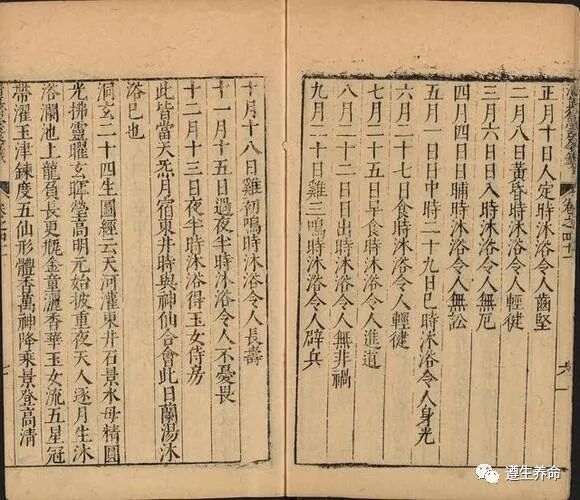 正月十日人定時沐浴令人齒堅
二月八日黃昏時沐浴令人輕健
三月六日日入時沐浴令人無厄
四月四日日晡時沐浴令人無訟
五月一日日中時二十九日巳時沐浴令人身光
六月二十七日食時沐浴令人輕健
七月二十五日早食時沐浴令人進道
八月二十二日日出時沐浴令人無非禍
九月二十日雞三鳴時沐浴令人辟兵
十月十八日雞初鳴時沐浴令人長壽
十一月十五日過夜半時沐浴令人不憂畏
十二月十三日夜半時沐浴得玉女侍房
此皆當天炁月宿東井時與神仙合會此日蘭湯沐
浴巳也
洞玄二十四生圖經云天河灌東井石景水母精圓
光拂靈曜玄暉瑩高明元始披重夜天人逐月生沐
浴瀾池上龍負長更瓶金童灑香華玉女流五星冠
帶濯玉津鍊度五仙形體香萬神降乘景登高清
七
遵生养命